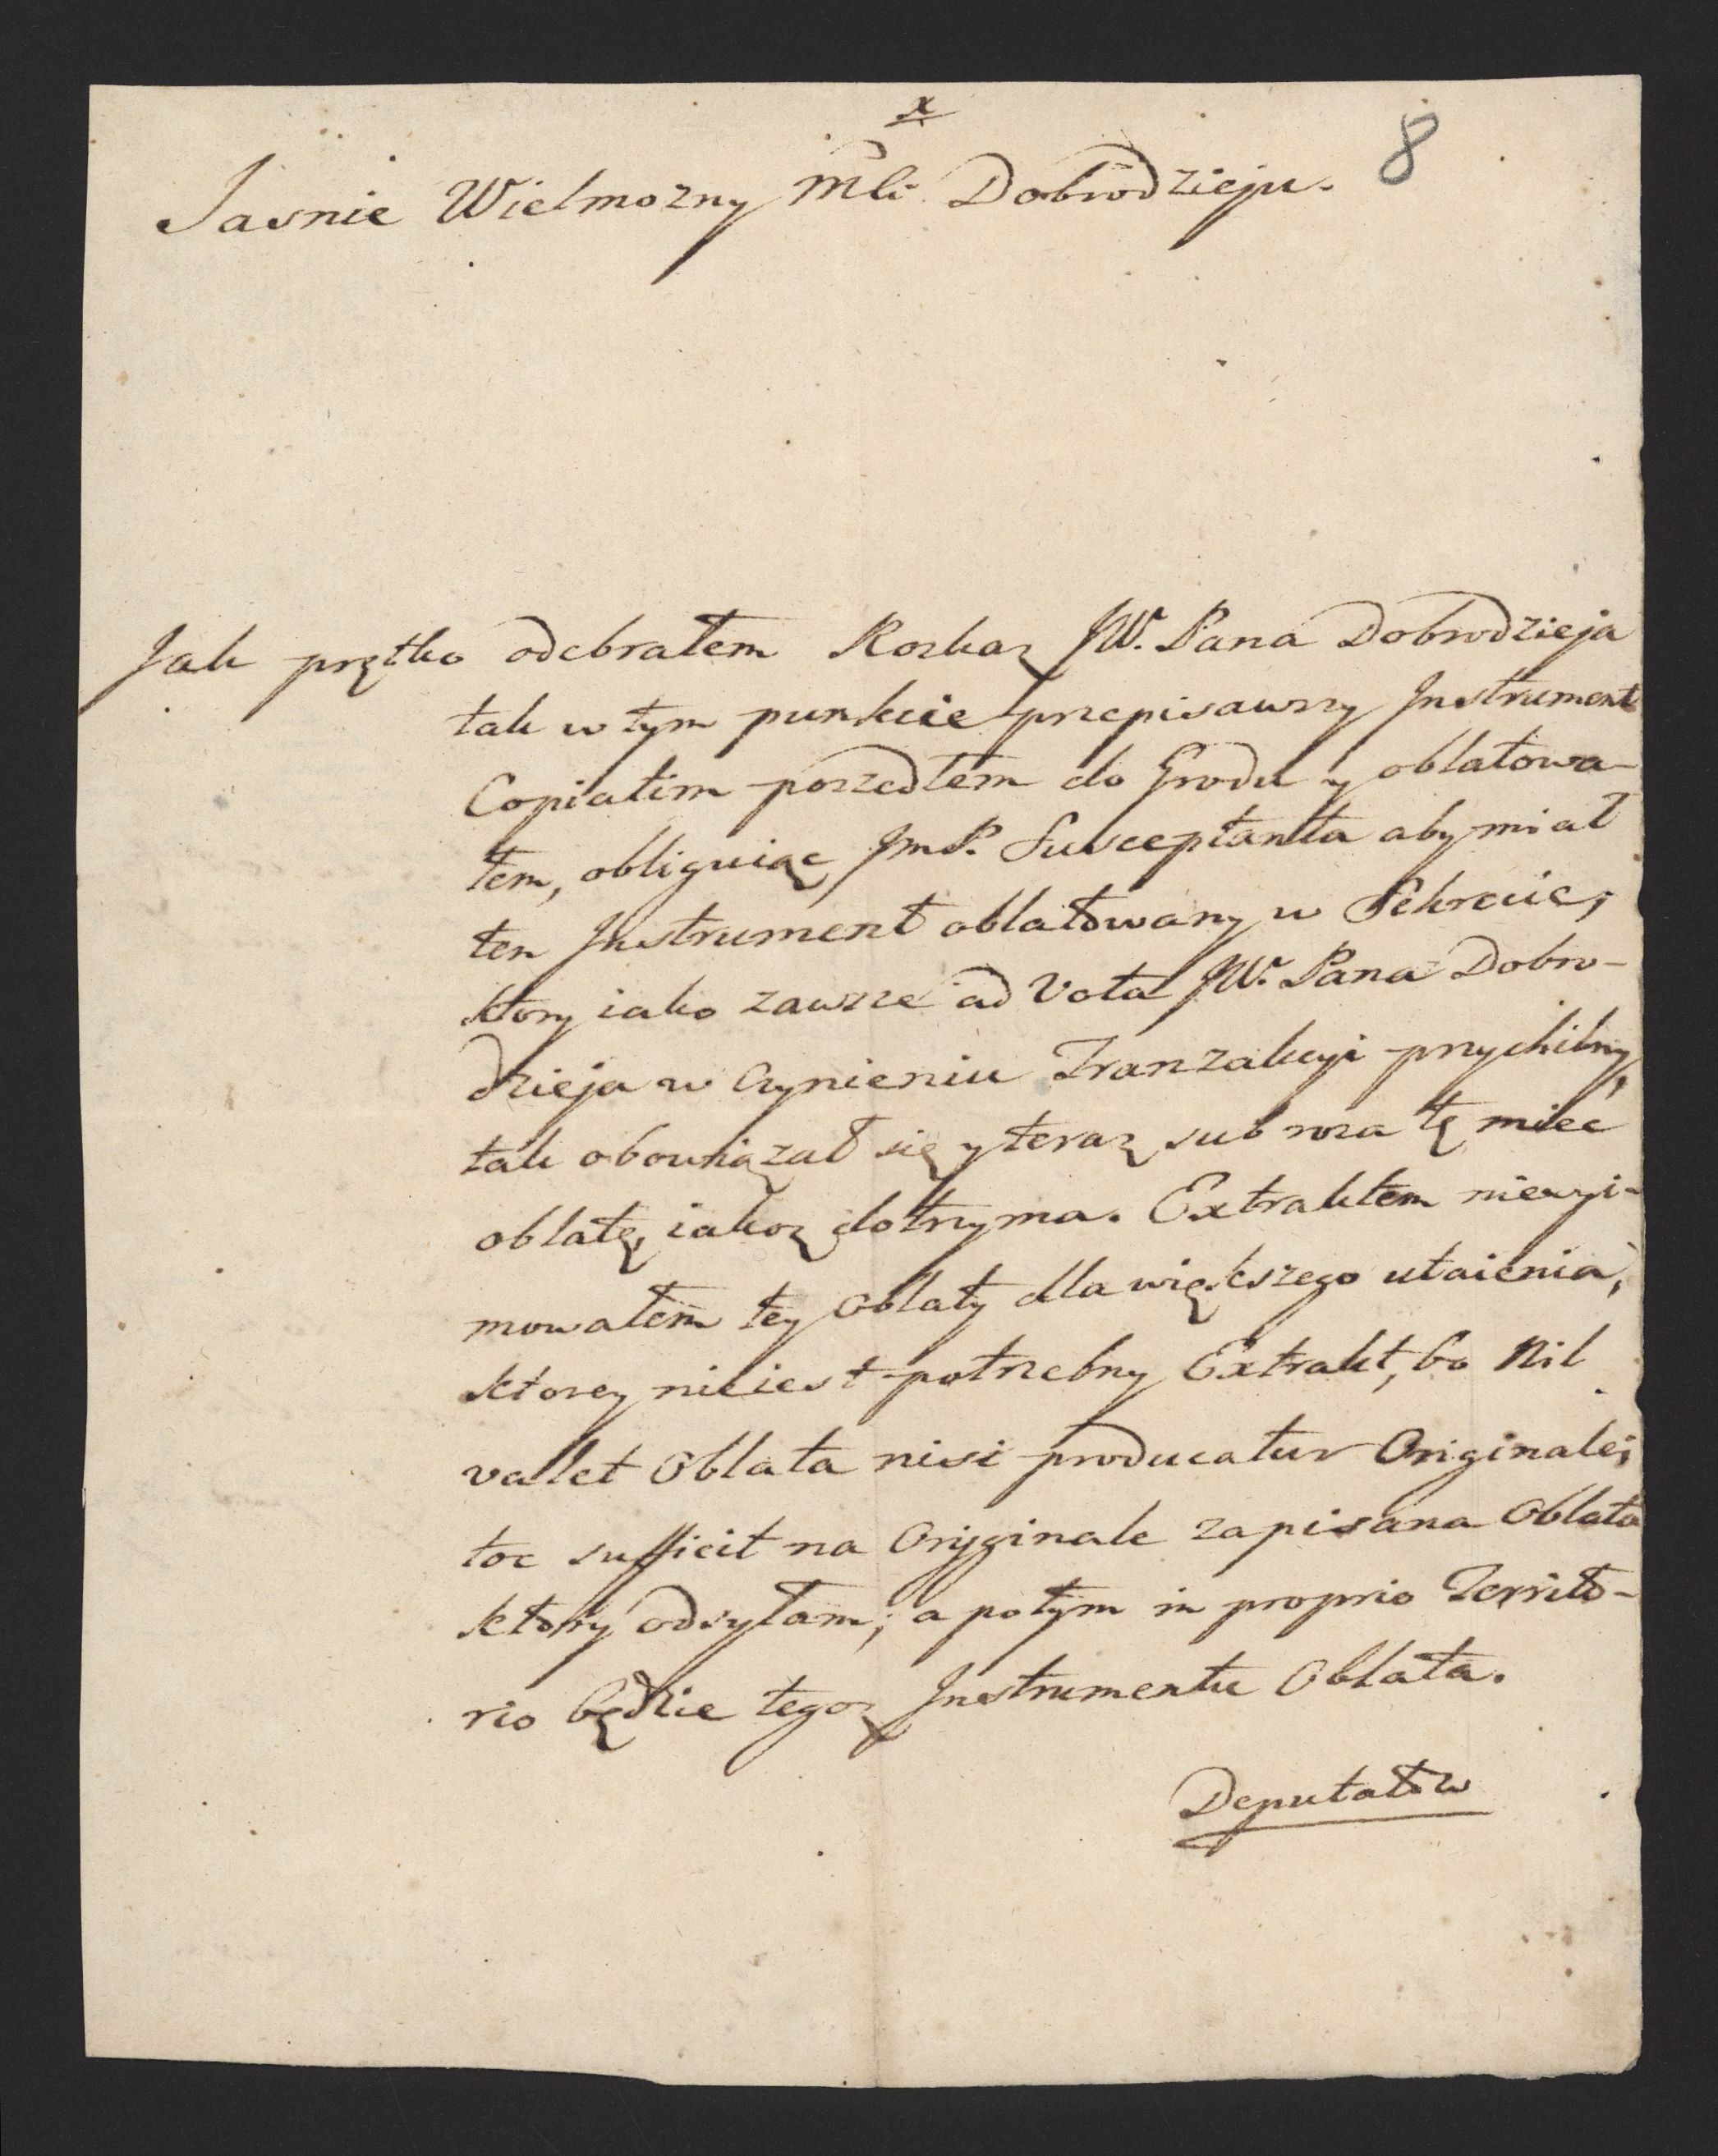 x
8
Jasnie Wielmozny Mći Dobrodzieju.
Jak prętko odebrałem Roskaz JW. Pana Dobrodzieja
tak w tym punkcie przepisawszy Instrument
Copiatim poszedłem do Grodu y oblatowa-
łem, obliguiąc JmP. Susceptanta aby miał
ten Instrument oblatowany w Sekrecie,
ktory iako zawsze ad Vota JW. Pana Dobro-
dzieja w czynieniu Tranzakcyi przychilny,
tak obowiązał się y teraz sub rosa tę miec
oblatę, iakoz dotrzyma. Extraktem niewyi-
mowałem tey oblaty dla większego utaienia,
ktorey nieiest potrzebny Extrakt, bo Nil
valet Oblata nisi producatur Originale;
toc sufficit na Oryginale zapisana Oblata
ktory odsyłam; a potym in proprio Territo-
rio będzie tegoz Instrumentu Oblata.
Deputatow